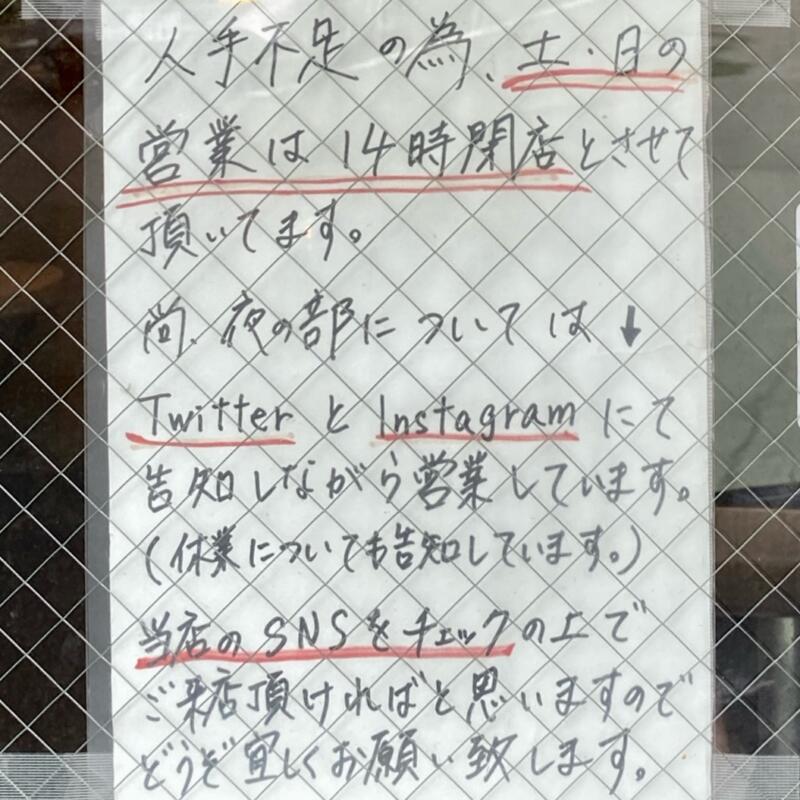 人手不足の為、土・日の
営業は14時閉店とさせて
頂いてます。
尚、夜の部については↓
TwitterとInstagramにて
告知しながら営業しています。
(休業についても告知しています。)
当店のSNSをチェックの上で
ご来店頂ければと思いますので
どうぞ宜しくお願い致します。